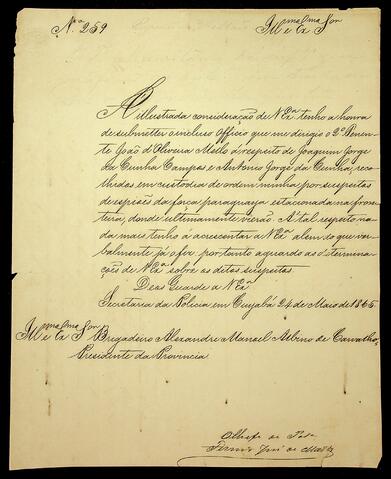 N.º 259
Ill.mo e Ex.mo Snr.
Á illustrada consideração de V Ex.ª tenho a honra
de submetter o incluso officio que me dirigio o 2º Tenen-
te João d'Oliveira Mello á respeito de Joaquim Jorge
da Cunha Campos e Antonio Jorge da Cunha, reco-
lhidos em custodia de ordem minha por suspeitos
de espiães da força paraguaya estacionada na fron-
teira, donde ultimamente vierão. A tal respeito na-
da mais tenho á acrescentar a V Ex.ª alem do que ver-
balmente já expuz portanto aguardo as determi-
nações de V Ex.ª sobre os ditos suspeitos.
Deos Guarde a V Ex.ª
Secretaria da Policia em Cuyabá 24 de Maio de 1865
Ill.mo e Ex.mo Snr. Brigadeiro Alexandre Manoel Albino de Carvalho,
Presidente da Provincia
O Chefe de
Firmo José de Mattos